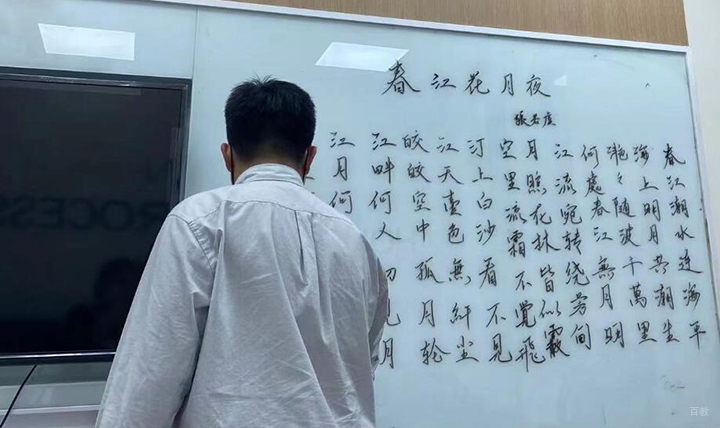 春江花月夜
張若虛
春江潮水连海平
海上明月共潮生
滟々随波千萬里
何處春江無月明
江流宛转绕芳甸
月照花林皆似霰
空里流霜不覺飛
汀上白沙看不見
江天壹色無纤尘
皎皎空中孤月轮
江畔何人初见月
江月何
ROCESS